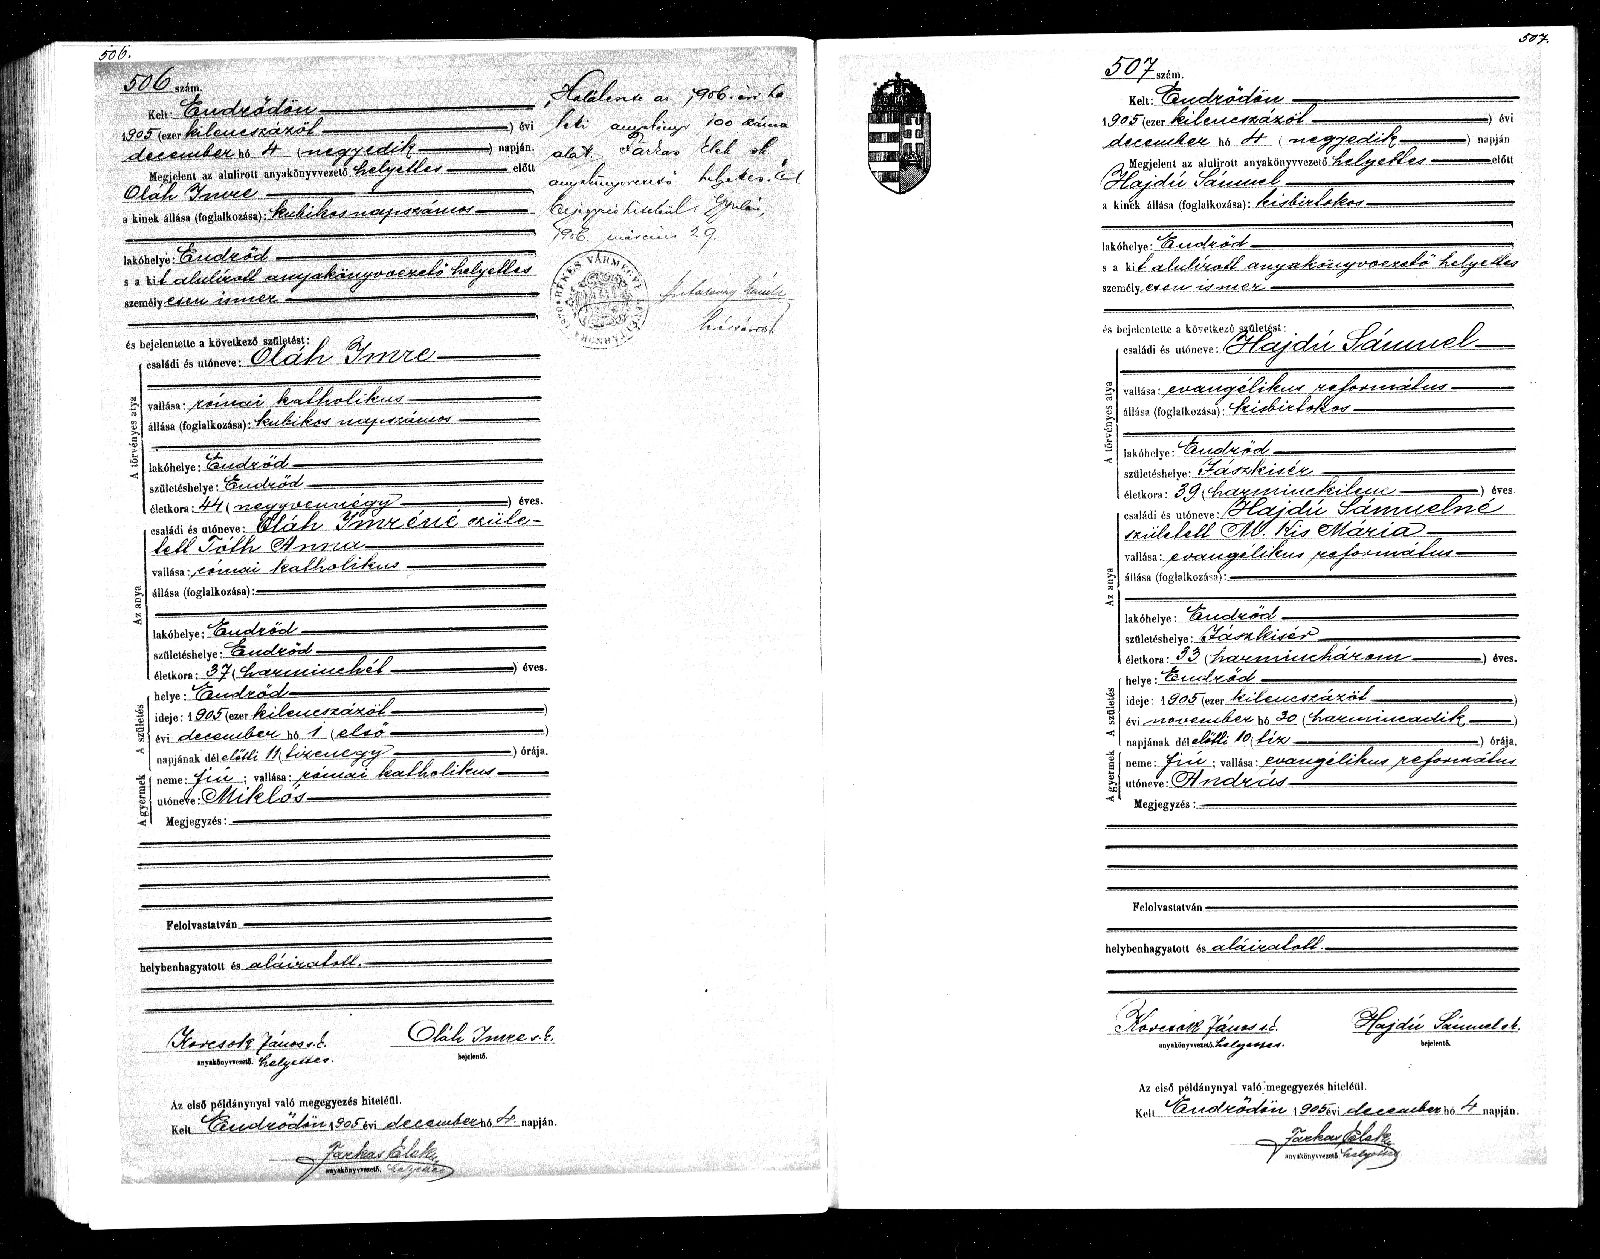 506.
506 szám.
Kelt: Endrődön
1905 (ezer kilencszázöt ) évi
december hó 4 (negyedik ) napján.
Megjelent az alulirott anyakönyvvezető helyettes előtt
Oláh Imre
a kinek állása (foglalkozása): kubikos napszámos
lakóhelye: Endrőd
s a kit alulírott anyakönyvvezető helyettes
személyesen ismer
és bejelentette a következő születést:
A törvényes atya
családi és utóneve: Oláh Imre
vallása: római katholikus
állása (foglalkozása): kubikos napszámos
lakóhelye: Endrőd
születéshelye: Endrőd
életkora: 44 (negyvennégy ) éves.
Az anya
családi és utóneve: Oláh Imréné szüle-
tett Tóth Anna
vallása: római katholikus
állása (foglalkozása):
lakóhelye: Endrőd
születéshelye: Endrőd
életkora: 37 (harminchét ) éves.
A születés
helye: Endrőd
ideje: 1905 (ezer kilencszázöt )
évi december hó 1 (első )
napjának délelőtti 11 (tizenegy ) órája.
A gyermek
neme: fiú ; vallása: római katholikus
utóneve: Miklós
Megjegyzés:
Felolvastatván
helybenhagyatott és aláiratott.
Kovcsok János s.k. Oláh Imre s.k.
anyakönyvvezető. helyettes. bejelentő.
Az első példánynyal való megegyezés hiteléül.
Kelt Endrődön 1905 évi december hó 4. napján.
Farkas Elek
anyakönyvvezető. helyettes
„Halálesete az 1906. évi ha-
lotti anyakönyv 100 száma
alatt. Farkas Elek sk.
anyakönyvvezető helyettes.
Gyulán,
1906. március 29.
BÉKÉS VÁRMEGYE
507.
507 szám.
Kelt: Endrődön
1905 (ezer kilencszázöt ) évi
december hó 4 (negyedik ) napján
Megjelent az alulirott anyakönyvvezető helyettes előtt
Hajdú Sámuel
a kinek állása (foglalkozása): kisbirtokos
lakóhelye: Endrőd
s a kit alulírott anyakönyvvezető helyettes
személyesen ismer
és bejelentette a következő születést:
A törvényes atya
családi és utóneve: Hajdú Sámuel
vallása: evangélikus református
állása (foglalkozása): kisbirtokos
lakóhelye: Endrőd
születéshelye: Jászkisér
életkora: 39 (harminckilenc ) éves.
Az anya
családi és utóneve: Hajdú Sámuelné
született M. Kis Mária
vallása: evangélikus református
állása (foglalkozása):
lakóhelye: Endrőd
születéshelye: Jászkisér
életkora: 33 (harminchárom ) éves.
A születés
helye: Endrőd
ideje: 1905 (ezer kilencszázöt )
évi november hó 30 (harmincadik )
napjának délelőtti 10 (tíz ) órája.
A gyermek
neme: fiú ; vallása: evangélikus református
utóneve: András
Megjegyzés:
Felolvastatván
helybenhagyatott és aláiratott.
Kovcsok János s.k. Hajdú Sámuel s.k.
anyakönyvvezető. helyettes. bejelentő.
Az első példánynyal való megegyezés hiteléül.
Kelt Endrődön 1905 évi december hó 4 napján.
Farkas Elek
anyakönyvvezető. helyettes